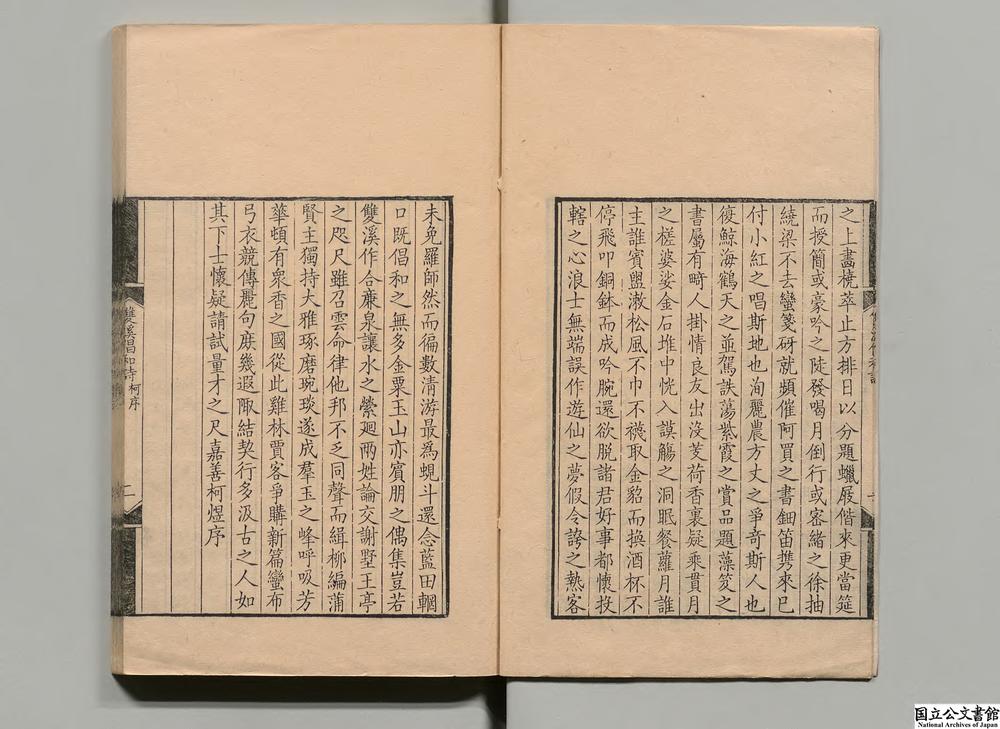 之上畵橈萃止方排日以分題蠟屐偕來更當筵
而授簡或豪吟之陡發喝月倒行或密緒之徐抽
繞梁不去蠻箋硏就頻催阿買之書鈿笛携來已
付小紅之唱斯地也洵麗農方丈之爭奇斯人也
復鯨海鶴天之並駕訣蕩紫霞之賞品題藻笈之
書屬有畸人掛情良友出沒芰荷香裏疑乘貫月
之槎婆娑金石堆中恍入謨觴之洞眠餐蘿月誰
主誰賓盥漱松風不巾不襪取金貂而換酒杯不
停飛叩銅鉢而成吟腕還欲脫諸君好事都懷投
轄之心浪士無端誤作遊仙之夢假令誇之熱客
未免羅師然而徧數清游最爲蜆斗還念藍田輞
口旣倡和之無多金粟玉山亦賓朋之偶集豈若
雙溪作合亷泉讓水之縈廻兩姓論交謝墅王亭
之咫尺雖召雲命律他邦不乏同聲而緝栁編蒲
賢主獨持大雅琢磨琬琰遂成羣玉之峰呼吸芳
華頓有衆香之國從此雞林賈客爭購新篇蠻布
弓衣競傳麗句庶幾遐陬結契行多汲古之人如
其下士懷疑請試量才之尺嘉善柯煜序
雙溪倡和詩 柯序
二
国立公文書館
National Archives of Japan